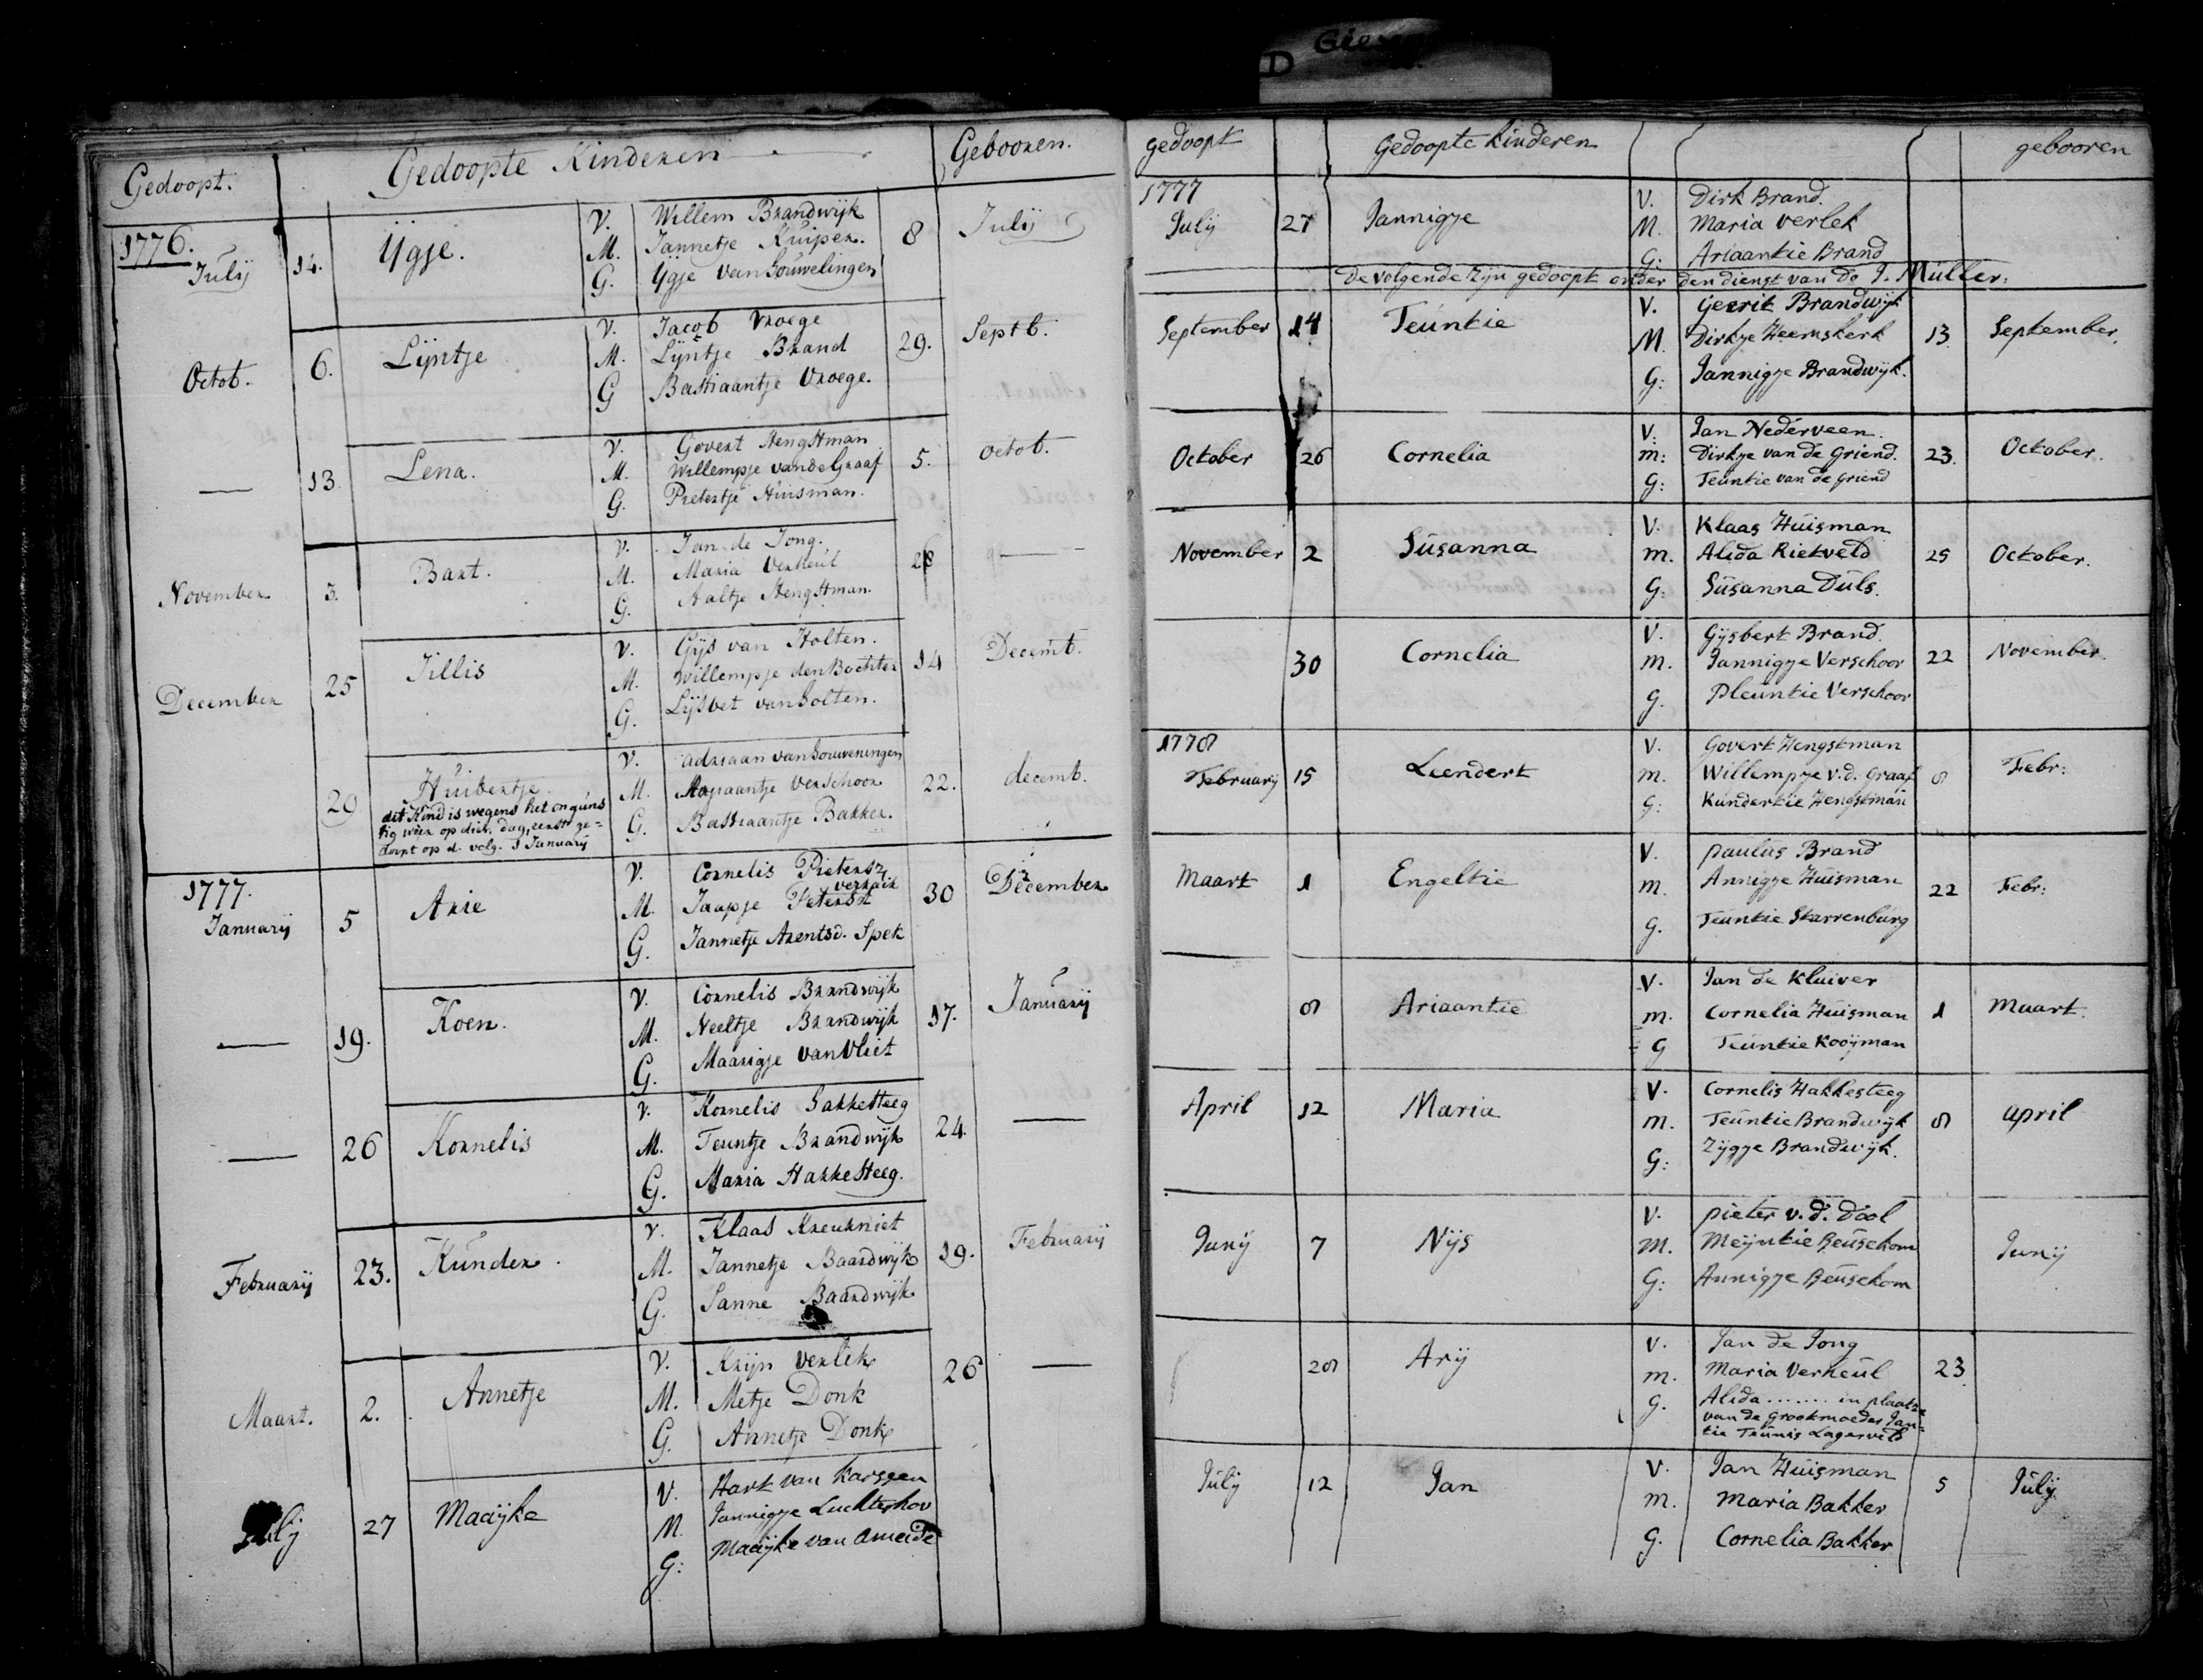 D Giess
Gedoopt. Gedoopte Kinderen Gebooren.
1776.
July 14. Ygje. V. Willem Brandwijk 8 July
M. Jannetje Kuiper.
G. Ygje van Gouwelingen
Octob. 6. Lijntje V. Jacob Vroege 29. Septb.
M. Lijntje Brand
G Bastiaantje Vroege.
— 13. Lena. V. Govert Hengstman 5. octob.
M. Willempje van de Graaf
G. Pietertje Huisman.
November 3. Bart. V. Jan de Jong. —
M. Maria Verheul
G. Aaltje Hengstman.
December 25 Jillis V. Gijs van Holten. 14 Decemb.
M. Willempje den Bochter
G. Lijsbet van Holten.
29 Huibertje. V. Adriaan van Gouweningen 22. decemb.
dit Kind is wegens het onguns
tig weer op dien dag, eerst ge=
doopt op d. volg. 1 January
M. Marjaantje Verschoor
G. Bastiaantje Bakker.
1777.
January 5 Arie V. Cornelis Pietersz 30 December
verkaik
M. Jaapje Peterst
G. Jannetje Arentsd. Spek
— 19. Koen. V. Cornelis Brandwijk 17. January
M. Neeltje Brandwijk
G. Maarigje van Vliet
— 26 Kornelis V. Kornelis Hakkesteeg 24. —
M. Teuntje Brandwijk
G. Maria Hakkesteeg.
February 23. Kunder. V. Klaas Kreukniet 19. February
M. Jannetje Baardwijk
G. Sanne Baardwijk
Maart. 2. Annetje V. Krijn Verlek 26 —
M. Metje Donk
G. Annetje Donk
July 27 Maaijke V. Hart van Karssen
M. Jannigje Luchtenhov
G: Maaijke van Ameide
gedoopt Gedoopte kinderen gebooren
1777
July 27 Jannigje V. Dirk Brand.
M. Maria Verlek
G: Ariaantie Brand
De volgende zijn gedoopt onder den dienst van do J. Müller:
September 14 Teuntie V. Gerrit Brandwijk 13 September.
M. Dirkje Heemskerk
G: Jannigje Brandwijk.
October 26 Cornelia V: Jan Nederveen. 23. October.
m: Dirkje van de Griend.
G: Teuntie van de Griend
November 2 Susanna V. Klaas Huisman 25 October.
m. Alida Rietveld
G: Susanna Duls.
30 Cornelia V. Gijsbert Brand. 22 November.
m. Jannigje Verschoor
G. Pleuntie Verschoor
1778
February 15 Leendert V. Govert Hengstman 8 Febr:
m. Willempje v.d. Graaf
G: Kundertie Hengstman
Maart 1 Engeltie V. Paulus Brand 22 Febr:
m. Annigje Huisman
G. Teuntie Starrenburg
8 Ariaantie V. Jan de Kluiver 1 Maart.
m. Cornelia Huisman
G Teuntie Kooijman
April 12 Maria V. Cornelis Hakkesteeg 8 April
m. Teuntie Brandwijk
G: Zijgje Brandwijk.
Junij 7 Nijs V. Pieter v.d. Dool Junij
M. Meijntie Beusekom
G: Annigje Beusekom
28 Arij V. Jan de Jong 23
m. Maria Verheul
G. Alida ....... in plaatze
van de grootmoeder Jan=
tie Teunis Lagerveld
July 12 Jan V. Jan Huisman 5 July
m. Maria Bakker
G. Cornelia Bakker